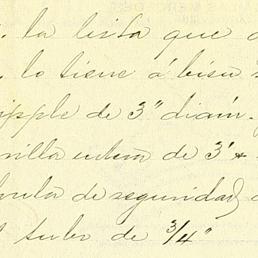 la lista que
lo tiene á bien
ipple de 3" diám.
entera de 3'
de seguridad,
tubo de 3/4"